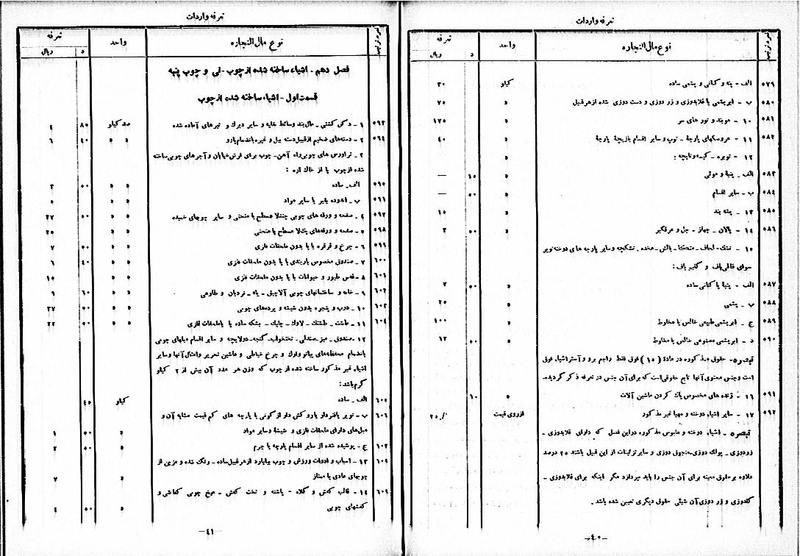 تعرفه واردات
نوع مال التجاره
واحد
تعرفه
د
ریال
۵۷۹ الف - پنبه و کتانی و پشمی ساده کیلو ۳۰
۵۸۰ ب - ابریشمی یا قلابدوزی و زر دوزی و دست دوزی شده از هر قبیل » ۷۰
۵۸۱ ۱۰ - موبند و تورهای سر » ۱۲۵
۵۸۲ ۱۱ - عروسکهای پارچهٔ - توپ و سایر اقسام بازیچهٔ پارچهٔ » ۴۰
۱۲ - توبره - کیسه و نایچه :
۵۸۳ الف - پنبهٔ و موئی » ۶۰ —
۵۸۴ ب - سایر اقسام » ۵۰ —
۵۸۵ ۱۳ - پشه بند » ۱۵
۵۸۶ ۱۴ - پالان - جهاز - جل و عرقگیر » ۵۰ ۲
۱۰ - تشک - لحاف - متکا - بالش - مخده - تشکچه و سایر پارچه های دوخته توپر
سوای قالی باف و گلیم باف :
۵۸۷ الف - پنبهٔ یا کتانی ساده » ۵۰ ۷
۵۸۸ ب - پشمی » ۲۵
۵۸۹ ج - ابریشمی طبیعی خالص یا مخلوط » ۱۰۰
۵۹۰ د - ابریشمی مصنوعی خالص یا مخلوط » ۵۰ ۱۲
تبصره - حقوق مذکوره در مادهٔ (۱۵) فوق فقط راجع برو و آستر اشیاء فوق
است و جنس محتوی آنها تابع حقوقی است که برای آن جنس در تعرفه ذکر گردیده.
۵۹۱ ۱۶ - ژنده های مخصوص پاک کردن ماشین آلات » ۱۰
۵۹۲ ۱۷ - سایر اشیاء دوخته و مهیا غیر مذکور از روی قیمت ٪۲۵
تبصره - اشیاء دوخته و ملبوس مذکوره در این فصل که دارای قلابدوزی -
زردوزی - پولک دوزی - منجوق دوزی و سایر تزئینات از این قبیل باشند ۲۵ درصد
علاوه بر حقوق معینه برای آن جنس را باید بپردازد مگر اینکه برای قلابدوزی -
گلدوزی و زر دوزی آن شیئی حقوق دیگری تعیین شده باشد.
— ۴۰ —
تعرفه واردات
نوع مال التجاره
واحد
تعرفه
د
ریال
فصل دهم - اشیاء ساخته شده از چوب - نی و چوب پنبه
قسمت اول - اشیاء ساخته شده از چوب
۵۹۳ ۱ - دکل کشتی - مال بند وسائط نقلیه و سایر دیرک و تیرهای آماده شده صد کیلو ۸۰ ۴
۵۹۴ ۲ - دسته‌های ضخیم از قبیل دسته بیل و غیره باستثناء پارو » » ۴۰ ۶
۳ - تراورس های چوبی راه آهن - چوب برای فرش خیابان و آجرهای چوبی ساخته
شده از چوب یا از خاک اره :
۵۹۵ الف - ساده » » ۵۰ ۳
۵۹۶ ب - اندوده بقیر یا سایر مواد » » ۵
۵۹۷ ۴ - صفحه و ورقه های چوبی چندلا مسطح یا منحنی و سایر چوبهای خمیده » » ۵۰ ۲۷
۵۹۸ ۵ - صفحه و ورقه‌های یکلا مسطح یا منحنی » » ۲۵
۵۹۹ ۶ - چرخ و قرقره با یا بدون ملحقات فلزی » » ۵۰ ۷
۶۰۰ ۷ - صندوق مخصوص باربندی با یا بدون ملحقات فلزی » » ۴۰ ۶
۶۰۱ ۸ - قفس طیور و حیوانات با یا بدون ملحقات فلزی » » ۱۵
۶۰۲ ۹ - خانه و ساختمانهای چوبی آلاچیق - پله - نردبان و طارمی » » ۶۰ ۹
۶۰۳ ۱۰ - درب و پنجره بدون شیشه و پرده‌های چوبی » » ۵۰ ۳۷
۶۰۴ ۱۱ - طشت - طشتک - لاوک - چلیک - بشکه ساده یا با ملحقات فلزی » » ۵۰ ۲۲
۱۲ - صندوق - میز - صندلی - تختخواب - گنجه - دولابچه و سایر اقسام مبلهای چوبی
باستثناء محفظه‌های پیانو و ارگ و چرخ خیاطی و ماشین تحریر و امثال آنها و سایر
اشیاء غیر مذکور ساخته شده از چوب که وزن هر عدد آن بیش از ۲ کیلو
گرم باشد :
۶۰۵ الف - ساده کیلو ۴۵
۶۰۶ ب - توپر با فنر دار یا روکش دار از گونی یا پارچه های کم قیمت مشابه آن و
مبل‌های دارای ملحقات فلزی و شیشهٔ و سایر مواد » ۵۰ ۱
۶۰۷ ج - پوشیده شده از سایر اقسام پارچه یا چرم » ۵۰ ۲
۶۰۸ ۱۳ - اسباب و ادوات ورزش و چوب بیلیارد از هر قبیل ساده - رنگ شده و مزین از
چوبهای عادی یا ممتاز » ۷
۶۰۹ ۱۴ - قالب کفش و کلاه - پاشنه و تخت کفش - میخ چوبی کفاشی و
کفشهای چوبی » ۵۰ ۴
— ۴۱ —